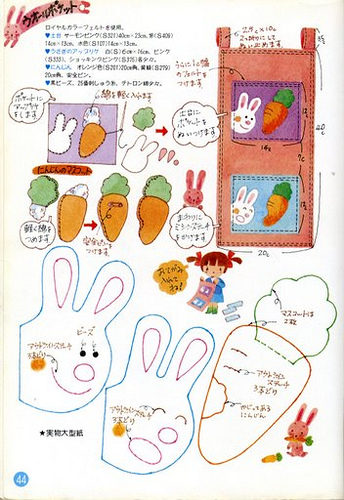 ウォールポケット
ロイヤルカラーフェルトを使用。
♥土台 サーモンピンク(S301)40cm×23cm、紫(S409)
14cm×13cm、水色(S107)14cm×13cm。
♥うさぎのアップリケ 白(S)6cm×16cm、ピンク
(S333)、ショッキングピンク(S375)各少々。
♥にんじん オレンジ色(S201)20cm角、黄緑(S279)
20cm角、安全ピン。
♥黒ビーズ、25番刺しゅう糸、テトロン綿少々。
ポケットに
アップリケ
をします
綿を軽く入れます
2つ折りにして
ぬいとめます
フェルトを
つけます
土台に
ポケットを
ぬいつけます
14cm
20cm
にんじんのマスコット
軽く綿を
つめます
安全ピンを
つけます
まわりに
ステッチ
をかけます
おてがみ
いれてね
ビーズ
アウトラインステッチ
3本どり
アウトラインステッチ
3本どり
アウトライン
ステッチ
3本どり
マスコットは
2枚
かじってある
にんじん
★実物大型紙
44